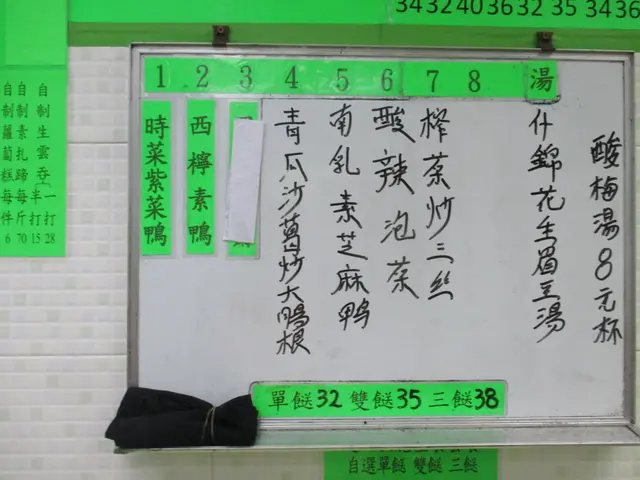 34 32 40 36 32 35 34 36
自制蘿蔔糕每件6
自制素扎蹄每斤70
自制生雲吞半打15 一打28
1 2 3 4 5 6 7 8 湯
時菜紫菜鴨
西檸素鴨
青瓜沙葛炒大腸根
南乳素芝麻鸭
酸辣泡菜
榨菜炒三丝
什錦花生眉豆湯
酸梅湯8元杯
單餸32 雙餸35 三餸38
自選單餸 雙餸 三餸